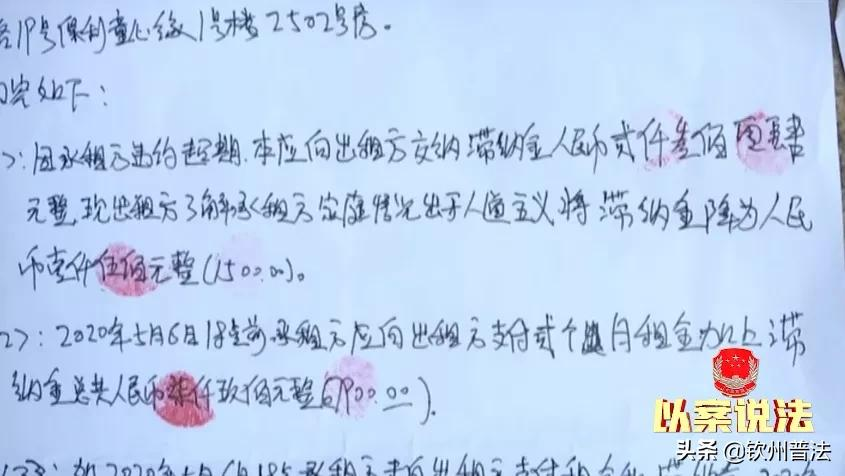 19号保利童心缘1号楼2502号房。
如下：
：因承租方违约超期，本应向出租方交纳滞纳金人民币贰仟叁佰
元整，现出租方了解承租方家庭情况出于人道主义将滞纳金降为人民
币壹仟伍佰元整(1500.00)。
2>：2020年5月6日18点前承租方应向出租方支付贰个月租金加上滞
纳金总共人民币柒仟玖佰元整(7900.00)。
以案说法
头条 @钦州普法